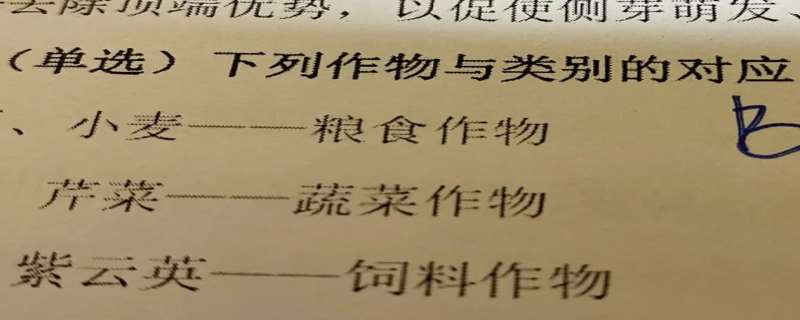 去除顶端优势，以促使侧芽萌发、
（单选）下列作物与类别的对应
、小麦——粮食作物
B
芹菜——蔬菜作物
紫云英——饲料作物